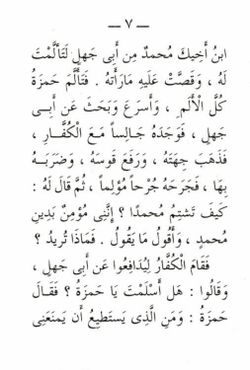 — ٧ —
ابنُ أخيكَ محمدٌ مِن أبى جهلٍ لَتَألَّمْتَ
لَهُ ، وَقَصَّتْ عَلَيهِ مَا رَأتهُ . فَتَألَّمَ حَمزَةُ
كلَّ الْأَلَمِ ، وَأسرَعَ وَبَحَثَ عَن أبى
جَهلٍ ، فَوَجَدَهُ جَالِساً مَعَ الْكُفَّارِ ،
فَذَهَبَ جِهَتَهُ ، وَرَفَعَ قَوسَهُ ، وَضَرَبَهُ
بِهَا ، فَجَرَحَهُ جُرْحاً مُؤلِماً ، ثُمَّ قَالَ لَهُ :
كَيفَ تَشتِمُ مُحمدًا ؟ إنَّنِى مُؤمِنٌ بَدِينِ
محمدٍ ، وَأقُولُ مَا يَقُولُ . فَمَاذَا تُرِيدُ ؟
فَقَامَ الْكُفَّارُ لِيُدَافِعُوا عَن أبى جهلٍ ،
وَقَالُوا : هَل أسْلَمْتَ يَا حمزةُ ؟ فَقَالَ
حمزةُ : وَمَنِ الَّذِى يَستَطِيعُ أن يَمنَعَنِى